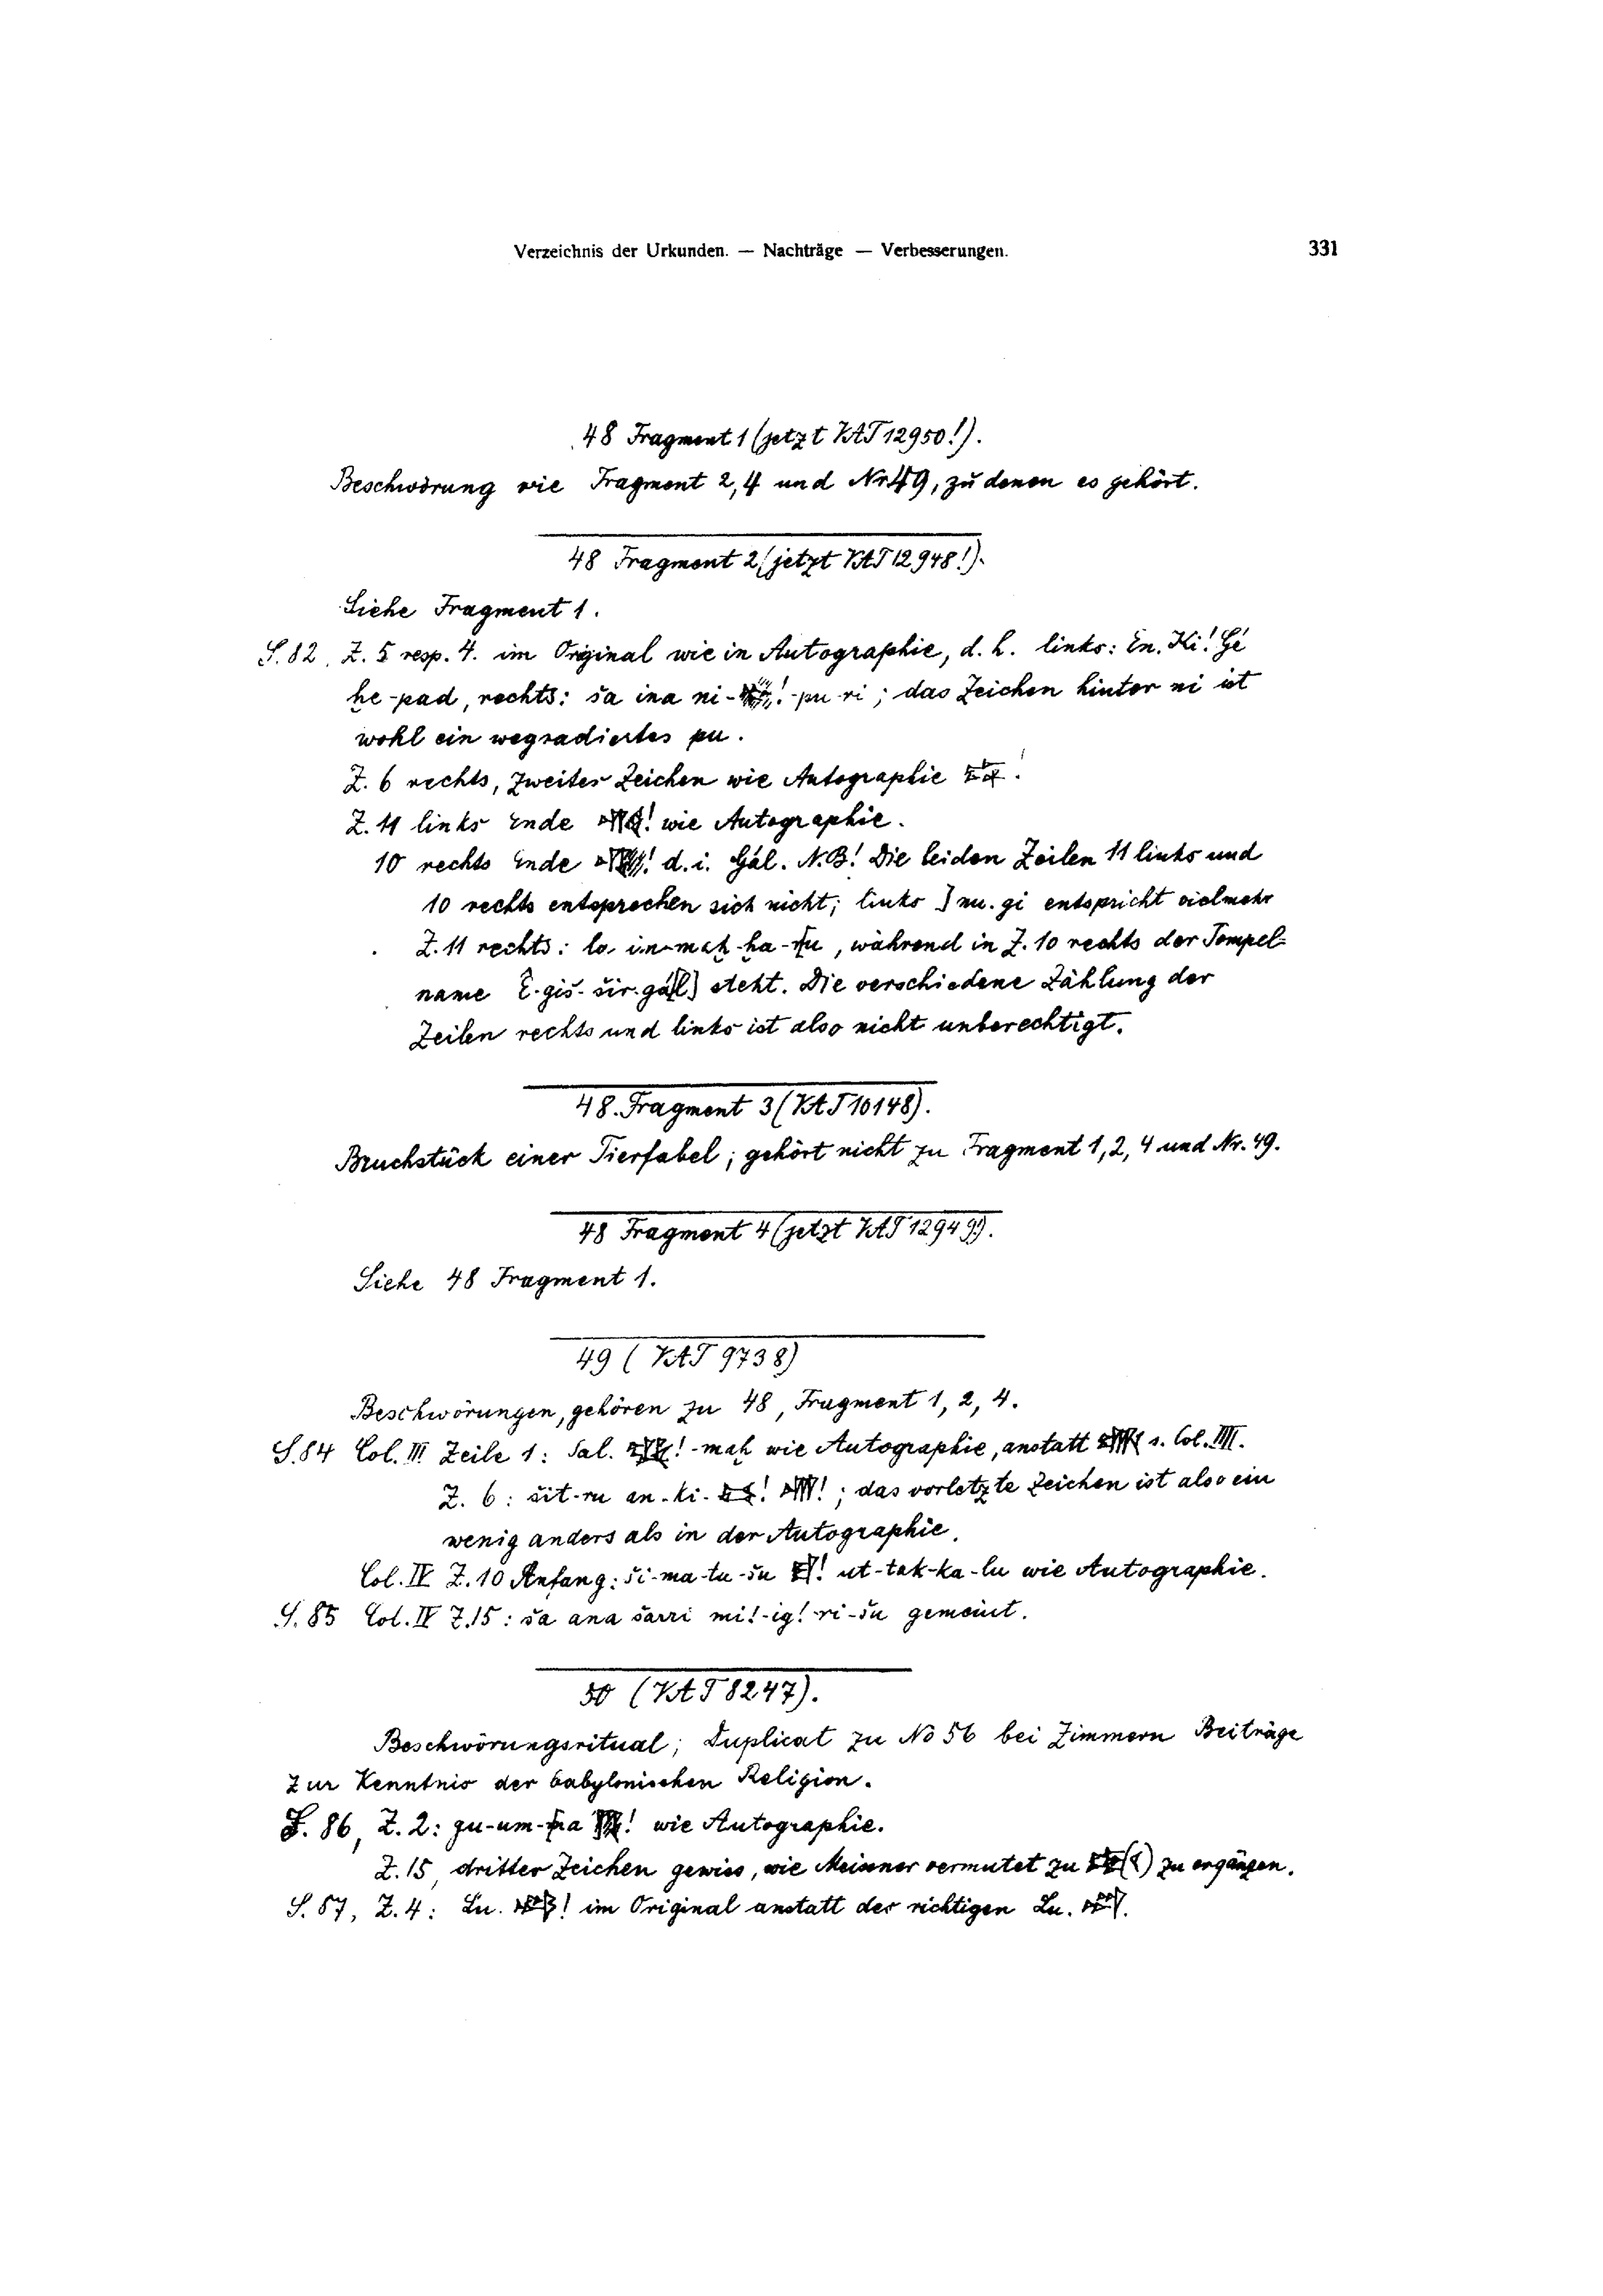 Verzeichnis der Urkunden. — Nachträge — Verbesserungen. 331
48 Fragment 1 (jetzt VAT 12950!).
Beschwörung wie Fragment 2, 4 und Nr 49, zu denen es gehört.
48 Fragment 2 (jetzt VAT 12948!).
Siehe Fragment 1.
S. 82, Z. 5 resp. 4. im Orginal wie in Autographie, d. h. links: En. Ki! Gé
ḫe-pad, rechts: ša ina ni- ! -pu-ri; das Zeichen hinter ni ist
wohl ein wegradiertes pu.
Z. 6 rechts, zweites Zeichen wie Autographie !
Z. 11 links Ende ! wie Autographie.
10 rechts Ende ! d. i. Gál. N.B! Die beiden Zeilen 11 links und
10 rechts entsprechen sich nicht; links ] nu. gi entspricht vielmehr
Z. 11 rechts: la im-maḫ-ḫa-ṣu, während in Z. 10 rechts der Tempel=
name E-giš-šir-gá[l] steht. Die verschiedene Zählung der
Zeilen rechts und links ist also nicht unberechtigt.
48. Fragment 3 (VAT 10148).
Bruchstück einer Tierfabel; gehört nicht zu Fragment 1, 2, 4 und Nr. 49.
48 Fragment 4 (jetzt VAT 12949!).
Siehe 48 Fragment 1.
49 (VAT 9738)
Beschwörungen, gehören zu 48, Fragment 1, 2, 4.
S. 84 Col. III Zeile 1: Sal. ! -maḫ wie Autographie, anstatt s. Col. IIII.
Z. 6: šit-ru an-ki- ! ! ; das vorletzte Zeichen ist also ein
wenig anders als in der Autographie.
Col. IV Z. 10 Anfang: ši-ma-tu-šu ! ut-tak-ka-lu wie Autographie.
S. 85 Col. IV Z. 15: ša ana šarri mi!-ig!-ri-šu gemeint.
50 (VAT 8247).
Beschwörungsritual; Duplicat zu No 56 bei Zimmern Beiträge
zur Kenntnis der babylonischen Religion.
S. 86, Z. 2: gu-um-ṣa ! wie Autographie.
Z. 15, drittes Zeichen gewiss, wie Meissner vermutet zu (?) zu ergänzen.
S. 87, Z. 4: Lu. ! im Original anstatt des richtigen Lu. .